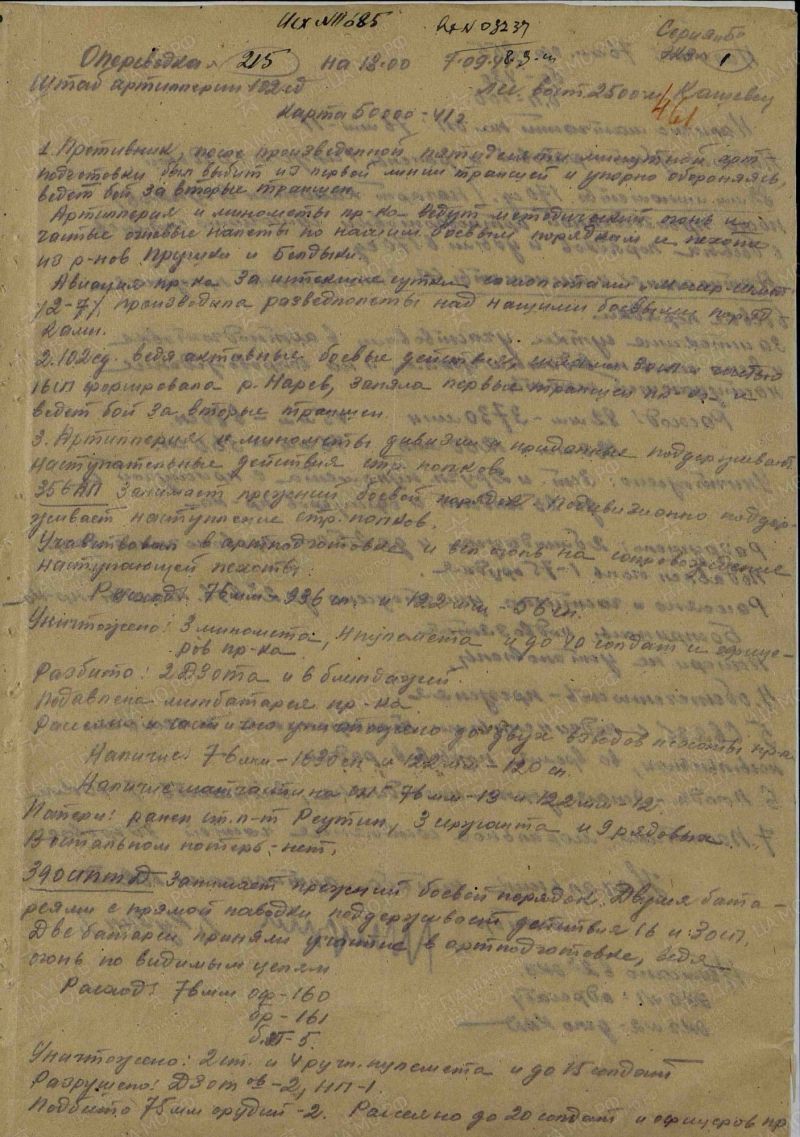 Исх №0685 Вх N 03237
Серия „Б"
Экз. 1
Оперсводка 215 на 18.00 7.09.44
Штаб артиллерии 102 сд вост. 2500 м
461
Карта 50000-41 г.
1. Противник, после произведенной пятидесяти минутной арт-
подготовки был выбит из первой линии траншей и упорно обороняясь,
ведет бой за вторые траншеи.
Артиллерия и минометы пр-ка ведут методический огонь и
частые огневые налеты по нашим боевым порядкам и пехоте
из р-нов Прушки и Белдыки.
Авиация пр-ка за истекшие сутки самолетами
/2-7/ производила разведполеты над нашими боевыми поряд
ками.
2. 102 сд. ведя активные боевые действия, 30 сп и частью
16 сп форсировала р. Нарев, заняла первые траншеи пр-ка и
ведет бой за вторые траншеи.
3. Артиллерия и минометы дивизии и приданные поддерживают
наступательные действия стр. полков.
356 АП занимает прежний боевой порядок. Подивизионно поддер-
живает наступление стр. полков.
Участвовал в артподготовке и вел огонь на сопровождение
наступающей пехоты.
Расход: 76 мм - 936 сн. и 122 мм - 56 сн.
Уничтожено: 3 миномета, 4 пулемета и до 40 солдат и офице-
ров пр-ка.
Разбито: 2 ДЗОТа и 6 блиндажей.
Подавлена минбатарея пр-ка.
Рассеяно и частично уничтожено до двух взводов пехоты пр-ка
Наличие: 76 мм - 1630 сн. и 122 мм - 120 сн.
Наличие матчасти на ОП: 76 мм - 13 и 122 мм - 12.
Потери: ранен ст. л-т Реутин, 3 сержанта и 9 рядовых.
В остальном потерь - нет.
390 иптд занимает прежний боевой порядок. Двумя бата-
реями с прямой наводки поддерживает действия 16 и 30 сп.
Две батареи приняли участие в артподготовке, ведя
огонь по видимым целям
Расход: 76 мм оф - 160
бр - 161
- 5.
Уничтожено: 2 ст. и 4 руч. пулемета и до 15 солдат
Разрушено: ДЗОТов - 2, НП - 1.
Подбито 75 мм орудий - 2. Рассеяно до 20 солдат и офицеров пр